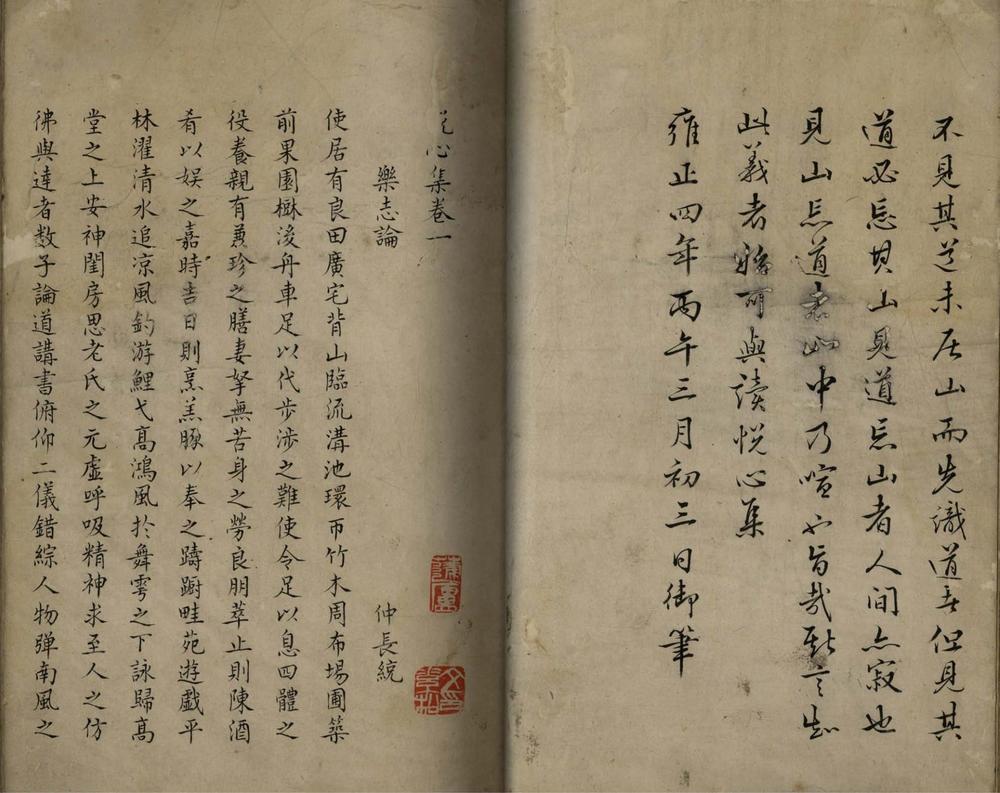 不見其道未居山而先識道者但見其
道必忘其山見道忘山者人間亦寂也
見山忘道者山中乃喧也旨哉斯言知
此義者始可與讀悅心集
雍正四年丙午三月初三日御筆
心集卷一
樂志論
仲長統
使居有良田廣宅背山臨流溝池環帀竹木周布場圃築
前果園樹後舟車足以代步涉之難使令足以息四體之
役養親有兼珍之膳妻孥無苦身之勞良朋萃止則陳酒
肴以娛之嘉時吉日則烹羔豚以奉之躊躕畦苑遊戲平
林濯清水追凉風釣游鯉弋高鴻風於舞雩之下詠歸高
堂之上安神閨房思老氏之元虛呼吸精神求至人之仿
彿與達者数子論道講書俯仰二儀錯綜人物弹南風之